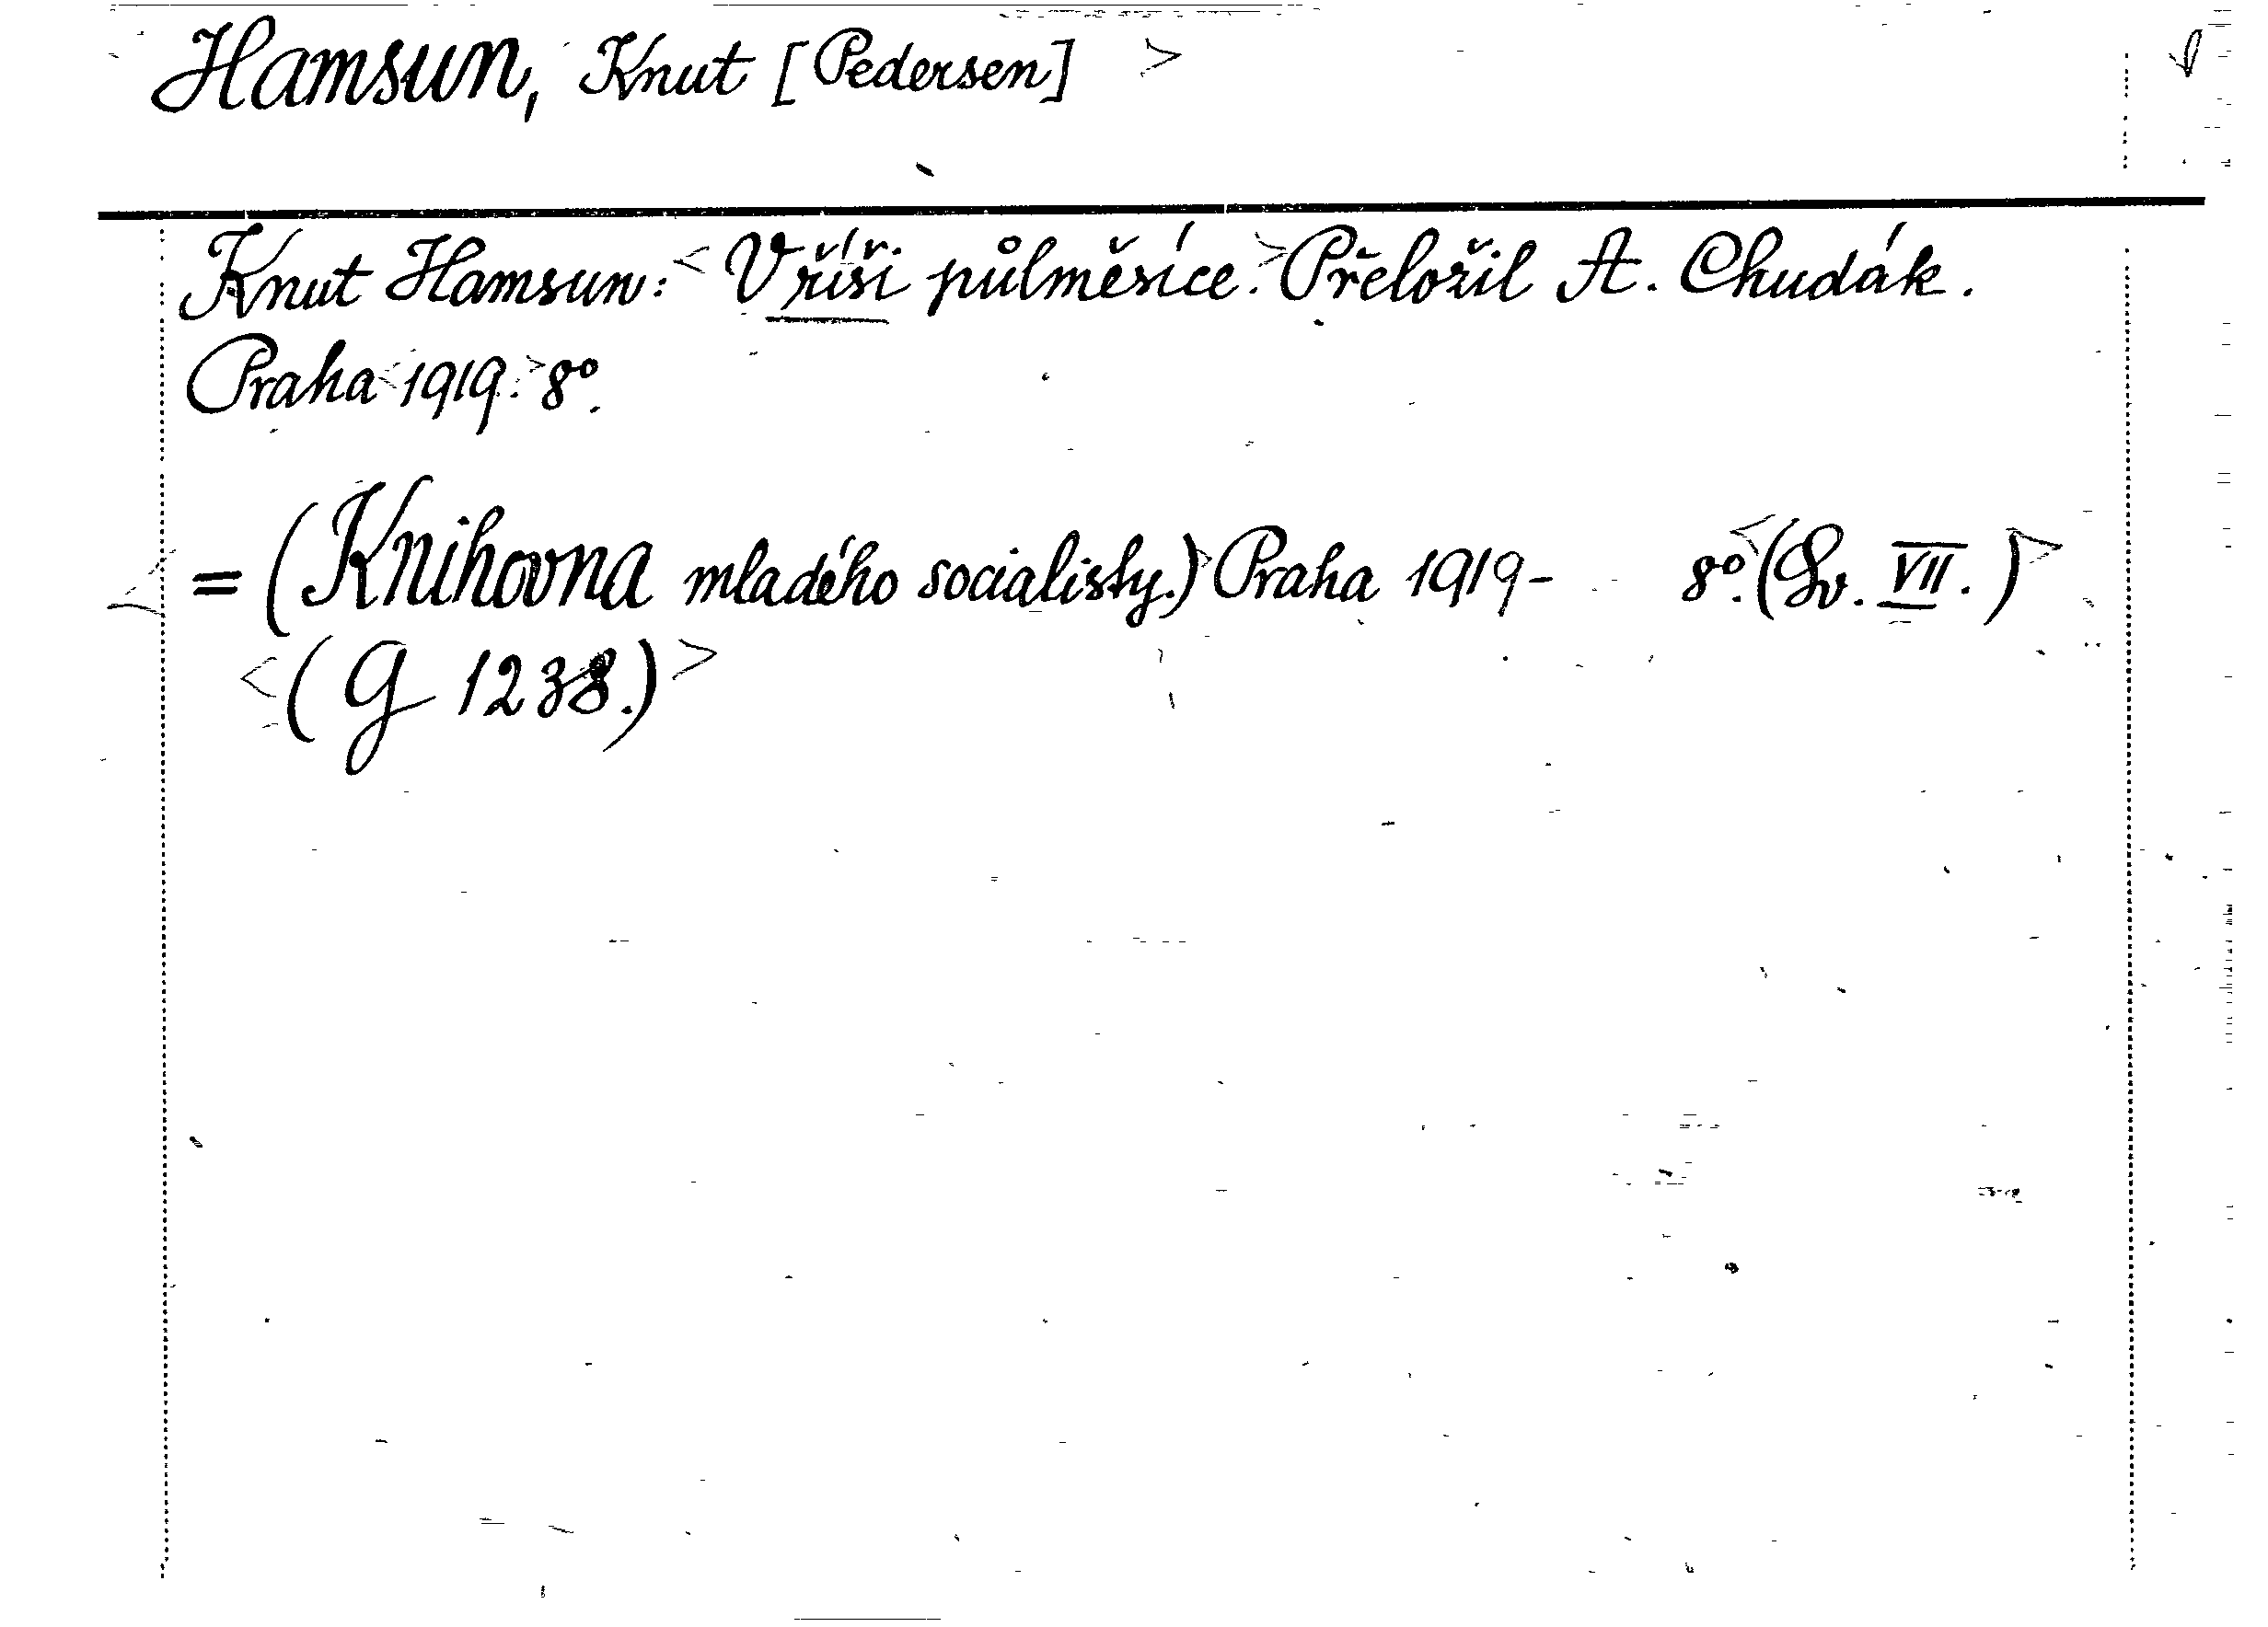 Hamsun, Knut [Pedersen] >
Knut Hamsun: <V říši půlměsíce.> Přeložil A. Chudák.
Praha <1919.> 8º.
= (Knihovna mladého socialisty.) Praha 1919- 8º. <(Sv. VII.)>
<(G 1238.)>